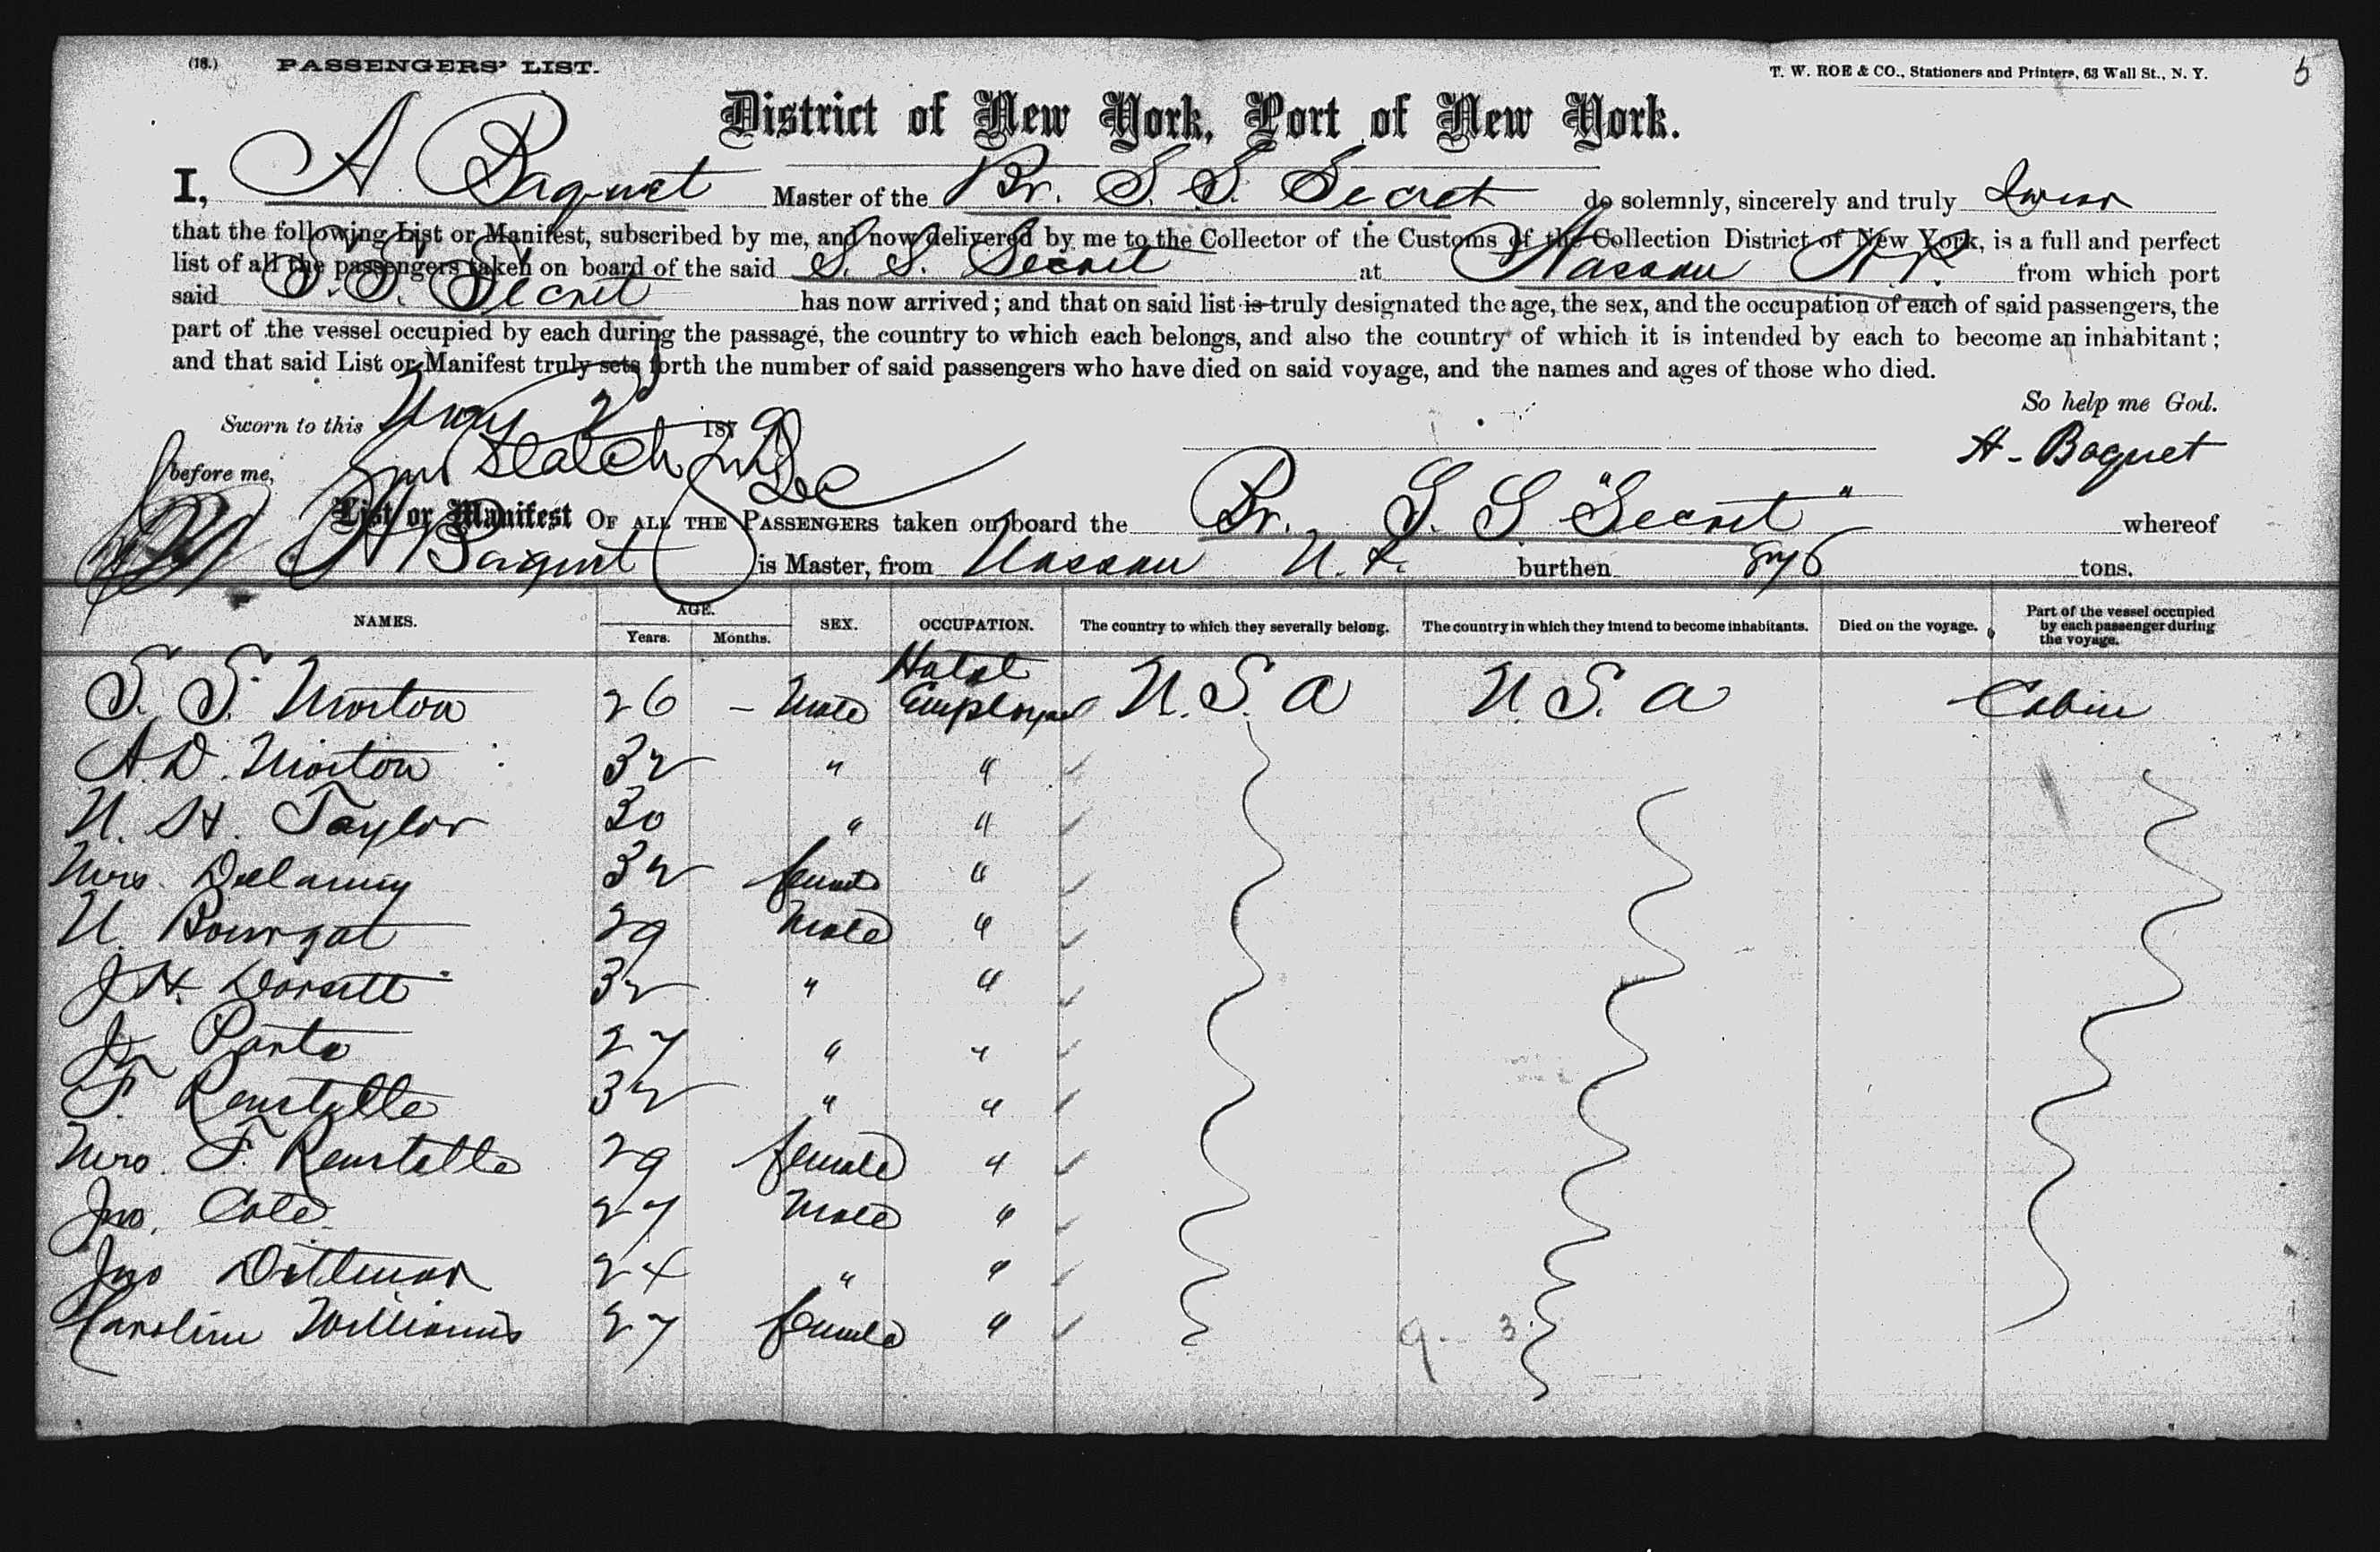 (18.) PASSENGERS' LIST.
T. W. ROE & CO., Stationers and Printers, 63 Wall St., N. Y.
5
District of New York, Port of New York.
I, A. Baquet Master of the Br. S. S. Secret do solemnly, sincerely and truly swear
that the following List or Manifest, subscribed by me, and now delivered by me to the Collector of the Customs of the Collection District of New York, is a full and perfect
list of all the passengers taken on board of the said S. S. Secret at Nassau N. P. from which port
said S. S. Secret has now arrived; and that on said list is truly designated the age, the sex, and the occupation of each of said passengers, the
part of the vessel occupied by each during the passage, the country to which each belongs, and also the country of which it is intended by each to become an inhabitant;
and that said List or Manifest truly sets forth the number of said passengers who have died on said voyage, and the names and ages of those who died.
So help me God.
Sworn to this May 2d 1879
A. Baquet
before me,
List or Manifest OF ALL THE PASSENGERS taken on board the Br. S. S "Secret" whereof
A Baquet is Master, from Nassau N. P. burthen 876 tons.
NAMES. AGE. Years. Months. SEX. OCCUPATION. The country to which they severally belong. The country in which they intend to become inhabitants. Died on the voyage. Part of the vessel occupied by each passenger during the voyage.
S. S. Morton 26 – Male Hotel Employee U. S. A U. S. A Cabin
A. D. Morton 32 " "
N. H. Taylor 30 " "
Mrs. Delamy 32 female "
N. Bourgat 29 Male "
J H. Dorsett 32 " "
Panta 27 " "
F. Renstelle 32 " "
Mrs. F. Renstelle 29 female "
Jno. Cole 27 Male "
Jno Dittmar 24 " "
Caroline Williams 27 female "
9. 3.